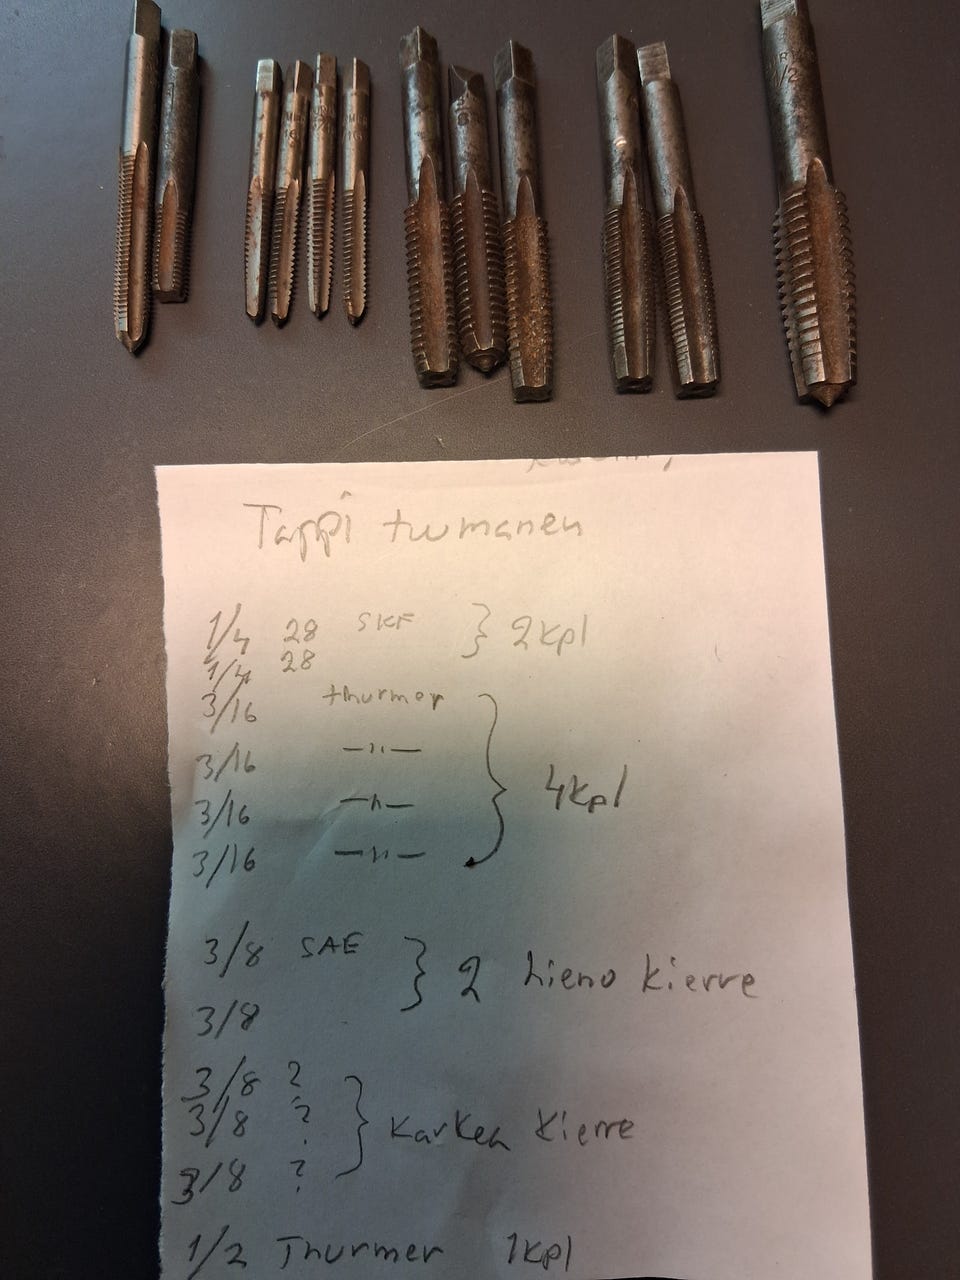 Tappi tuumanen
1/4 28 SKF } 2kpl
1/4 28
3/16 thurmer
3/16 —〃—
3/16 —〃—
3/16 —〃—
} 4kpl
3/8 SAE
3/8
} 2 hieno kierre
3/8 ?
3/8 ?
3/8 ?
} Karkea kierre
1/2 Thurmer 1kpl
1/2